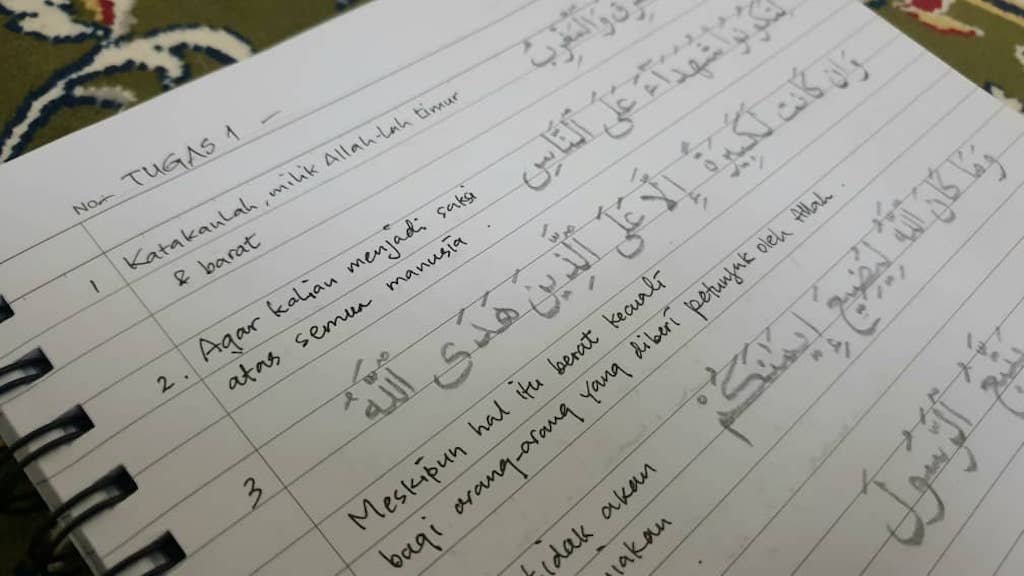 No. TUGAS 1 -
1 Katakanlah, milik Allah-lah timur
& barat
وَالْمَغْرِبُ
2. Agar kalian menjadi saksi
atas semua manusia.
لِتَكُونُوا۟ شُهَدَآءَ عَلَى ٱلنَّاسِ
وَإِن كَانَتْ لَكَبِيرَةً إِلَّا عَلَى ٱلَّذِينَ هَدَى
ٱللَّهُ
3 Meskipun hal itu berat kecuali
bagi orang-orang yang diberi petunjuk oleh Allah.
وَمَا كَانَ ٱللَّهُ لِيُضِيعَ
إِيمَـٰنَكُمْ
tidak akan
ٱلرَّسُولَ